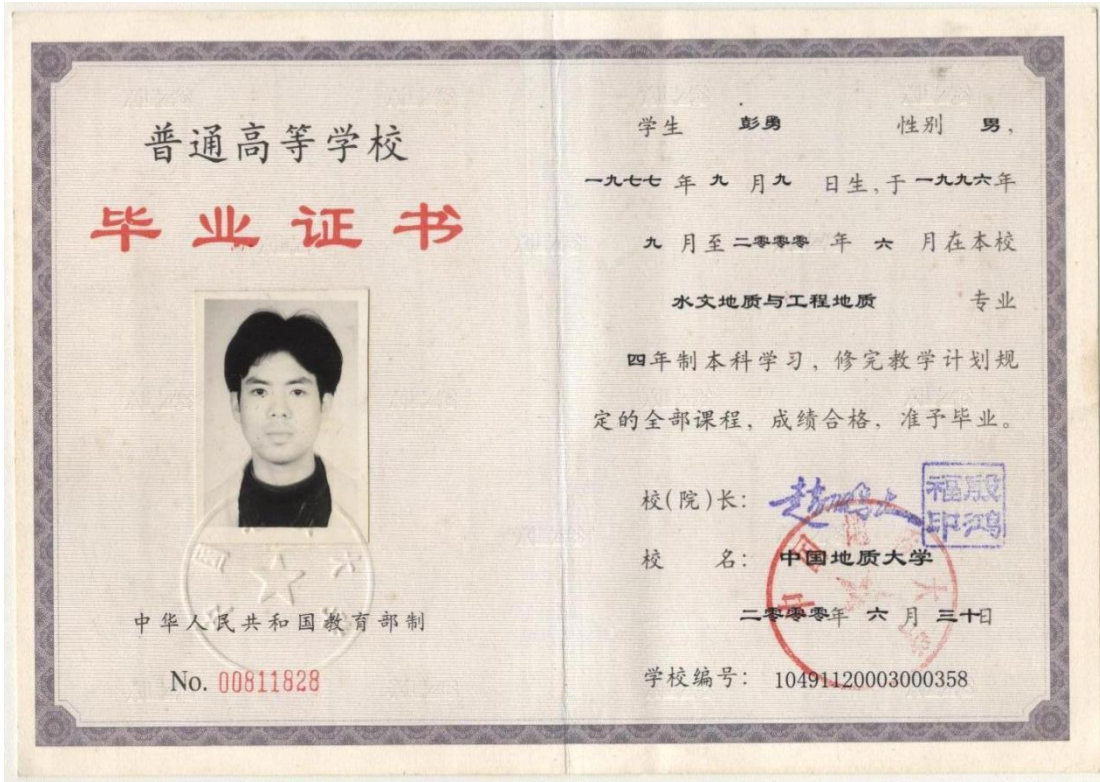 普通高等学校
毕业证书
中华人民共和国教育部制
No. 00811828
学生 彭勇 性别 男，
一九七七 年 九 月 九 日生，于 一九九六年
九 月至 二零零零 年 六 月在本校
水文地质与工程地质 专业
四年制本科学习，修完教学计划规
定的全部课程，成绩合格，准予毕业。
校(院)长： 赵鹏大 殷鸿福印
校 名： 中国地质大学
二零零零年 六 月 三十日
学校编号： 10491120003000358